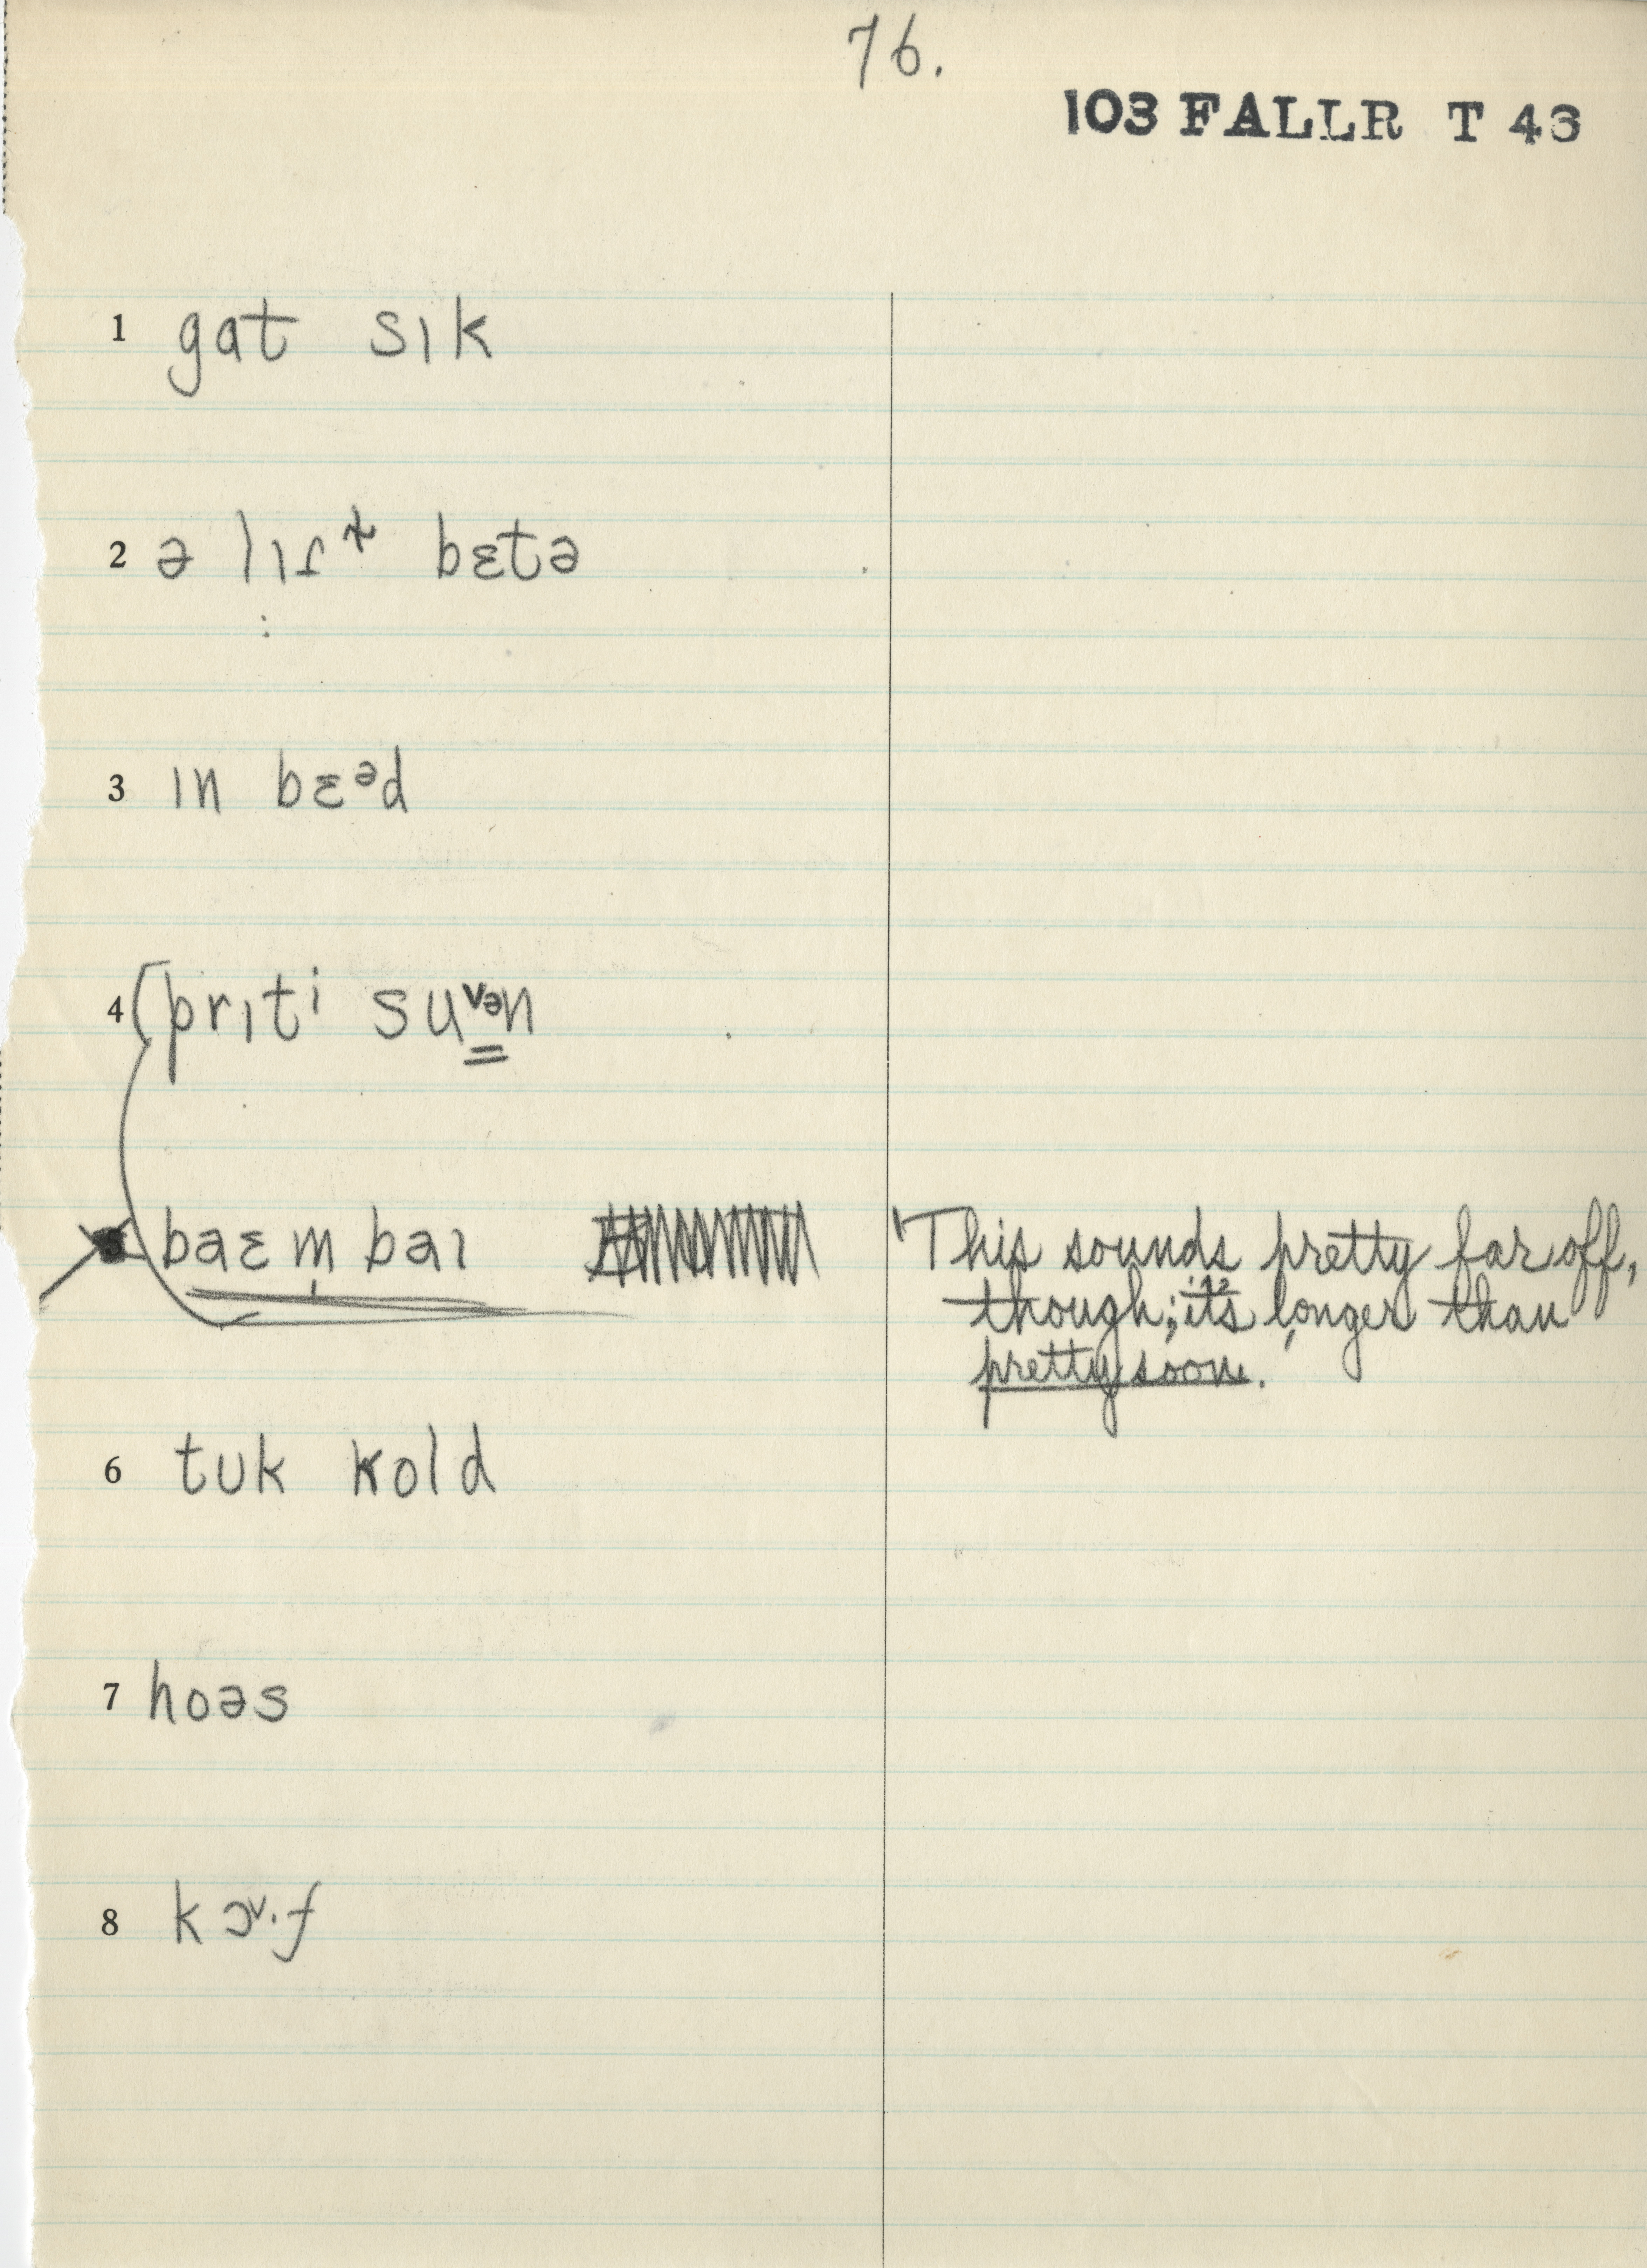 76.
103 FALLR T 43
1 gat sɪk
2 ə lɪɾ bɛtə
3 ɪn bɛᵊd
4 [prɪti suᵛᵊn
baɛm baɪ This sounds pretty far off,
though; it's longer than
pretty soon.
6 tuk kold
7 hoəs
8 kɔᵛ·f